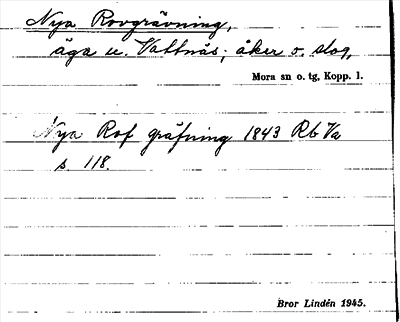 Nya Rovgrävning,
äga u. Vattnäs; åker o. slog,
Mora sn o. tg, Kopp. l.
Nya Rof gräfning 1843 Rb Va
s. 118.
Bror Lindén 1945.